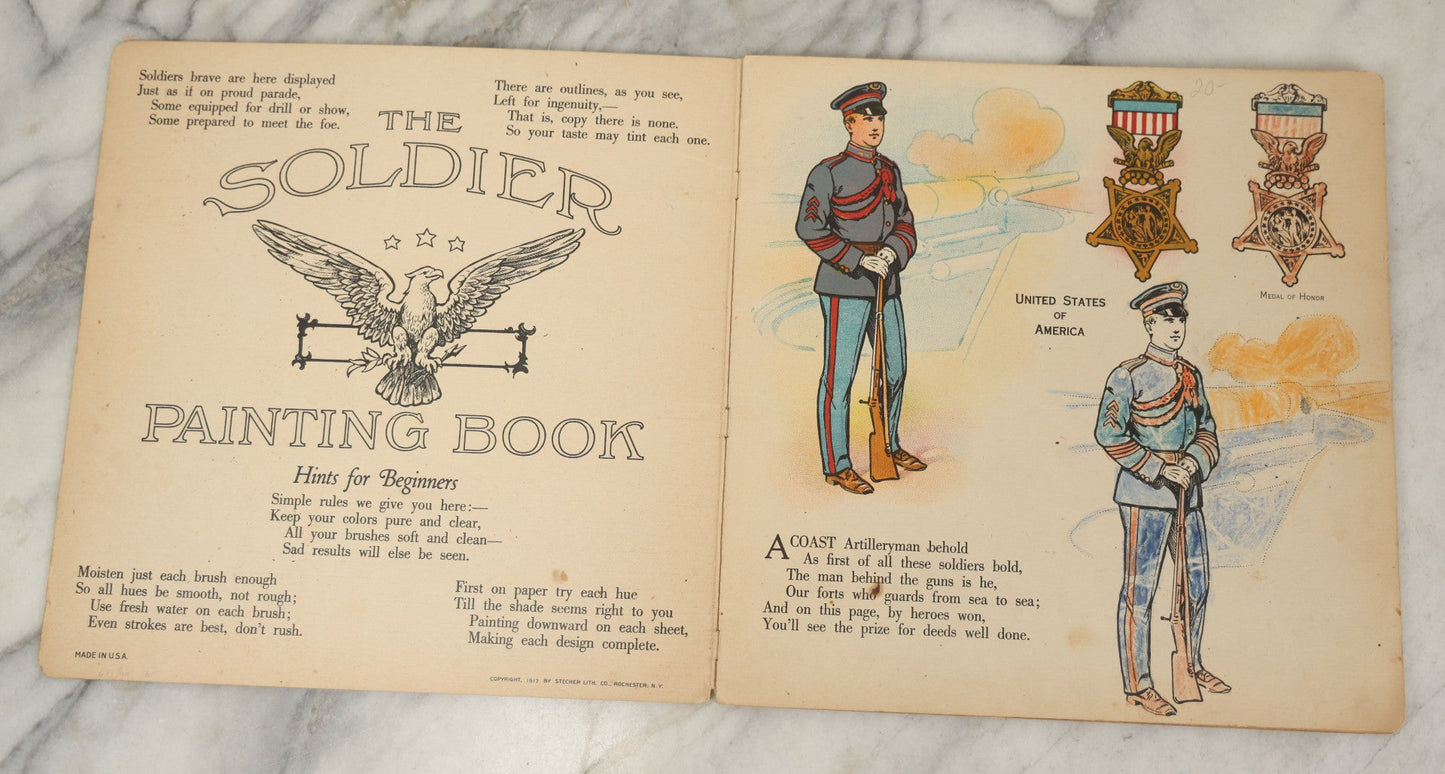 Soldiers brave are here displayed
Just as if on proud parade,
Some equipped for drill or show,
Some prepared to meet the foe.
There are outlines, as you see,
Left for ingenuity,—
That is, copy there is none.
So your taste may tint each one.
THE
SOLDIER
PAINTING BOOK
Hints for Beginners
Simple rules we give you here:—
Keep your colors pure and clear,
All your brushes soft and clean—
Sad results will else be seen.
Moisten just each brush enough
So all hues be smooth, not rough;
Use fresh water on each brush;
Even strokes are best, don't rush.
First on paper try each hue
Till the shade seems right to you
Painting downward on each sheet,
Making each design complete.
MADE IN U.S.A.
COPYRIGHT, 1917 BY STECHER LITH. CO., ROCHESTER, N.Y.
20-
MEDAL OF HONOR
UNITED STATES
OF
AMERICA
A COAST Artilleryman behold
As first of all these soldiers bold,
The man behind the guns is he,
Our forts who guards from sea to sea;
And on this page, by heroes won,
You'll see the prize for deeds well done.